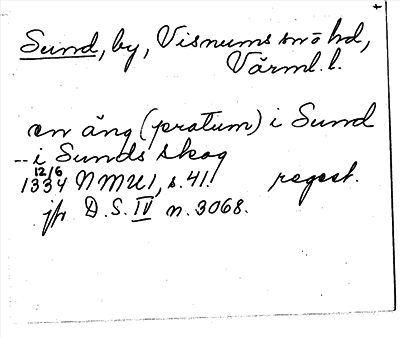 Sund, by, Visnums sn̄o hd,
Värml. l.
en äng (pratum) i Sund
-- i Sunds skog
12/6
1334 NMU 1, s. 41. regest.
jfr D.S. IV n. 3068.